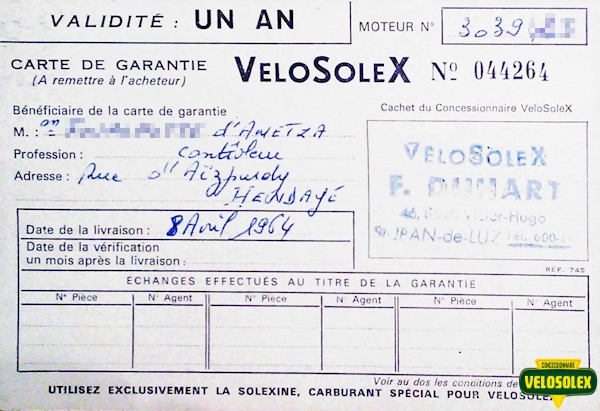 VALIDITÉ : UN AN
MOTEUR N° 3039
CARTE DE GARANTIE
(A remettre à l'acheteur)
VELOSOLEX
No 044264
Bénéficiaire de la carte de garantie
M. : d'AMETZA
Profession : Contrôleur
Adresse : rue d'Aizpurdy
HENDAYE
Cachet du Concessionnaire VeloSoleX
VELOSOLEX
F. DUHART
46, Victor-Hugo
St JEAN-de-LUZ Tél. 600-
Date de la livraison : 8 Avril 1964
Date de la vérification
un mois après la livraison :
RÉF. 745
ÉCHANGES EFFECTUÉS AU TITRE DE LA GARANTIE
N° Pièce N° Agent N° Pièce N° Agent N° Pièce N° Agent
Voir au dos les conditions de
UTILISEZ EXCLUSIVEMENT LA SOLEXINE, CARBURANT SPÉCIAL POUR VELOSOLEX
CONCESSIONNAIRE
VELOSOLEX